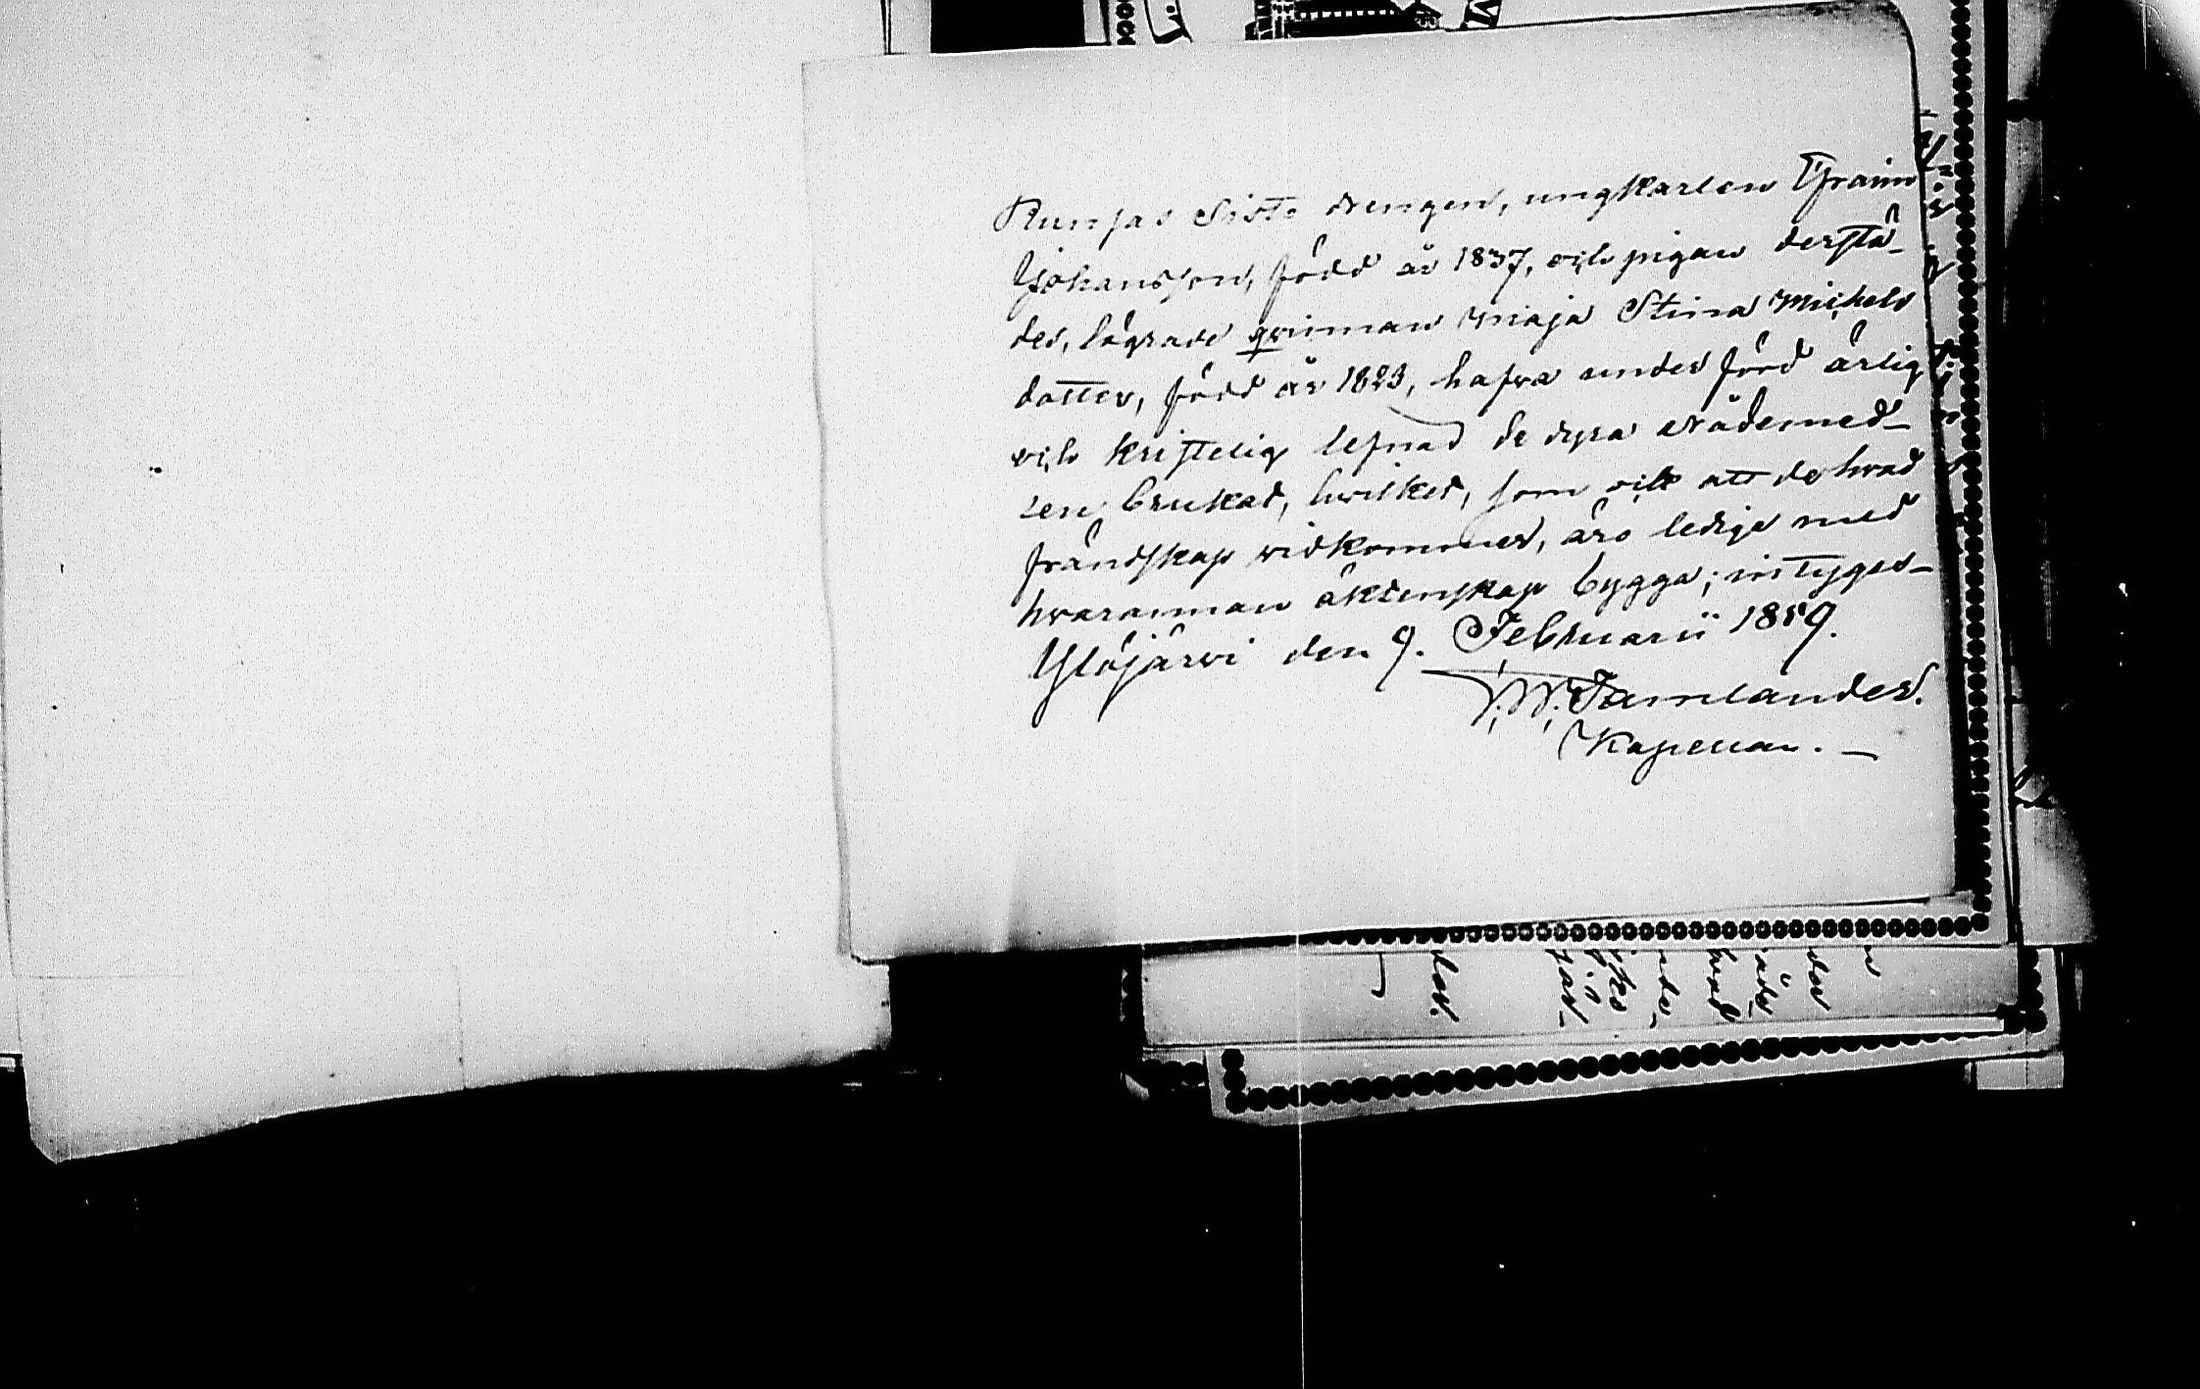 Runsas Siste drengen, ungkarlen Frans
Johansson, född år 1837, och pigan derstä-
des, lägrade qvinnan Maja Stina Michels
dotter, född år 1823, hafva under förd ärlig
och kristelig lefnad de dyra nådemed-
len brukat, hvilket, som ock att de hvad
frändskap widkommer, äro lediga med
hvarannan äktenskap bygga; intygas-
Ylöjärvi den 9. Februarii 1859.
Kapellan. -